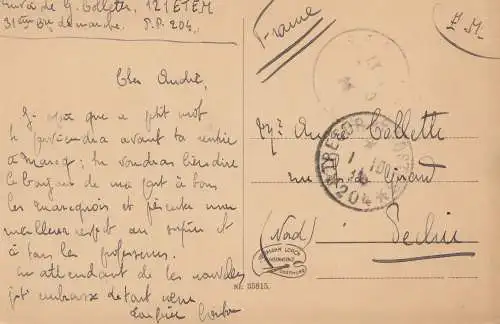 de G. Collette, 121 ETEM
31ème Bon de marche. S.P. 204.
France
F.M.
Cher André,
J'espère que ce petit mot
te parviendra avant ta rentrée
à Marcq; tu voudras bien dire
le bonjour de ma part à tous
les marcquois et présenter mon
meilleur respect au supérieur et
à tous les professeurs.
En attendant de tes nouvelles
je t'embrasse de tout cœur
Mr André Collette
rue Girard
(Nord) Seclin
TRESOR ET POSTES
204
HERMANN LORCH
DORTMUND
Nr. 35815.